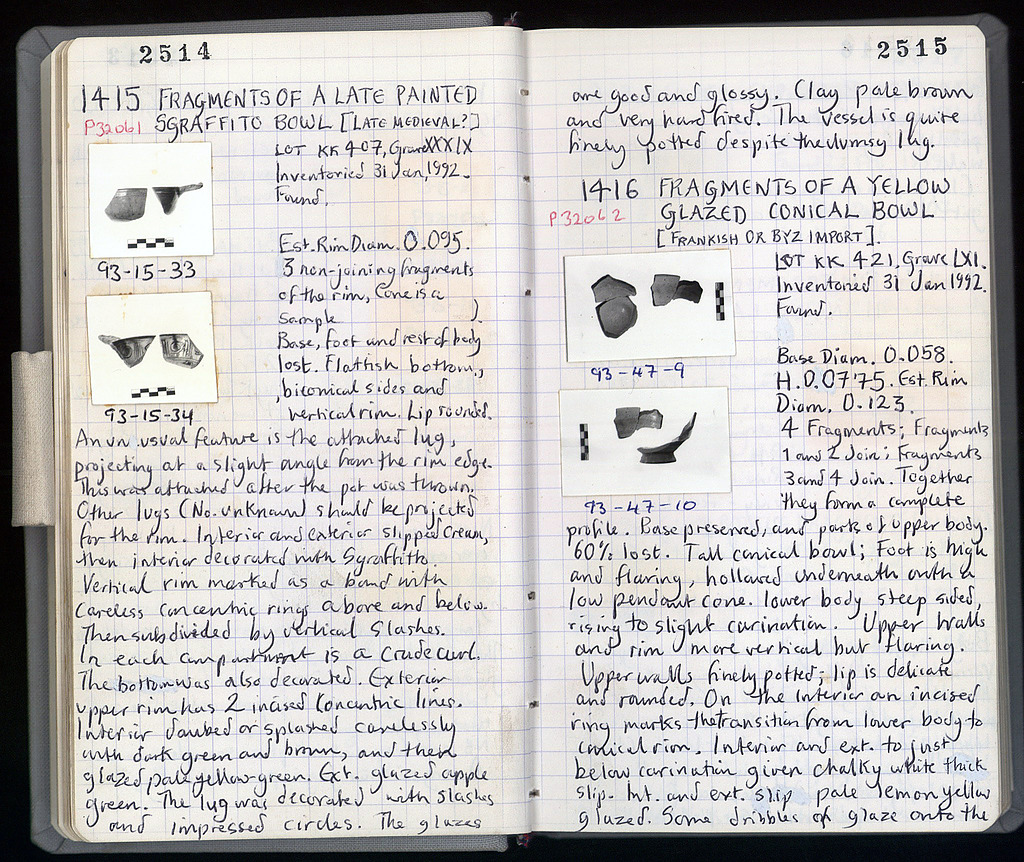 2514
1415 FRAGMENTS OF A LATE PAINTED
P32061 SGRAFFITO BOWL [LATE MEDIEVAL?]
LOT KK 407, Grave XXXIX
Inventoried 31 Jan, 1992.
Found.
Est. Rim Diam. 0.095.
3 non-joining fragments
of the rim, (one is a
sample ).
Base, foot and rest of body
lost. Flattish bottom,
biconical sides and
vertical rim. Lip rounded.
93-15-33
93-15-34
An un usual feature is the attached lug,
projecting at a slight angle from the rim edge.
This was attached after the pot was thrown.
Other lugs (No. unknown) should be projected
for the rim. Interior and exterior slipped cream,
then interior decorated with Sgraffito.
Vertical rim marked as a band with
careless concentric rings above and below.
Then subdivided by vertical slashes.
In each compartment is a crude curl.
The bottom was also decorated. Exterior
upper rim has 2 incised concentric lines.
Interior daubed or splashed carelessly
with dark green and brown, and then
glazed pale yellow-green. Ext. glazed apple
green. The lug was decorated with slashes
and impressed circles. The glazes
2515
are good and glossy. Clay pale brown
and very hard fired. The vessel is quite
finely potted despite the clumsy lug.
1416 FRAGMENTS OF A YELLOW
P32062 GLAZED CONICAL BOWL
[FRANKISH OR BYZ IMPORT].
LOT KK 421, Grave LXI.
Inventoried 31 Jan 1992.
Found.
Base Diam. 0.058.
H. 0.0775. Est. Rim
Diam. 0.123.
4 Fragments; Fragments
1 and 2 Join; Fragments
3 and 4 Join. Together
they form a complete
93-47-9
93-47-10
profile. Base preserved, and parts of upper body.
60% lost. Tall conical bowl; Foot is high
and flaring, hollowed underneath with a
low pendant cone. lower body steep sided,
rising to slight carination. Upper walls
and rim more vertical but flaring.
Upper walls finely potted; lip is delicate
and rounded. On the interior an incised
ring marks the transition from lower body to
conical rim. Interior and ext. to just
below carination given chalky white thick
slip. Int. and ext. slip pale lemon yellow
glazed. Some dribbles of glaze onto the